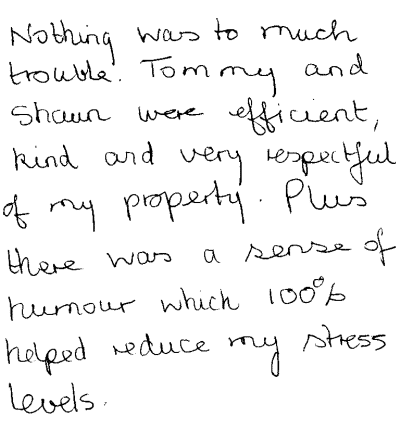 Nothing was to much
trouble. Tommy and
Shaun were efficient,
kind and very respectful
of my property. Plus
there was a sense of
humour which 100%
helped reduce my stress
levels.